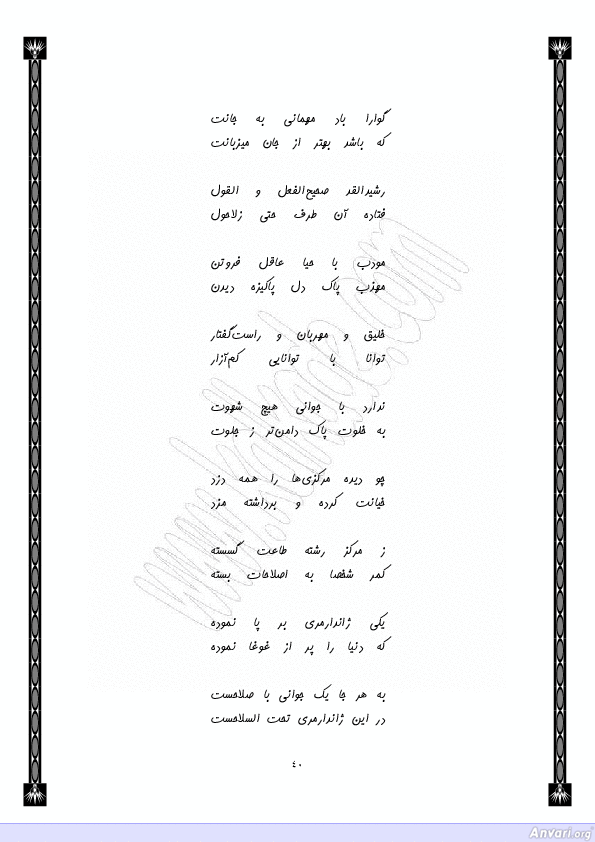 گوارا باد مهمانی به جانت
که باشد بهتر از جان میزبانت
رشیدالقد صحیح‌الفعل و القول
فتاده آن طرف حتی زلاحول
مودب با حیا عاقل فروتن
مهذب پاک دل پاکیزه دیدن
خلیق و مهربان و راست‌گفتار
توانا با توانایی کم‌آزار
ندارد با جوانی هیچ شهوت
به خلوت پاک دامن‌تر ز جلوت
چو دیده مرکزی‌ها را همه دزد
خیانت کرده و برداشته مزد
ز مرکز رشته طاعت گسسته
کمر شخصا به اصلاحات بسته
یکی ژاندارمری بر پا نموده
که دنیا را پر از غوغا نموده
به هر جا یک جوانی با صلاحست
در این ژاندارمری تحت السلاحست
۴۰
Anvari.org